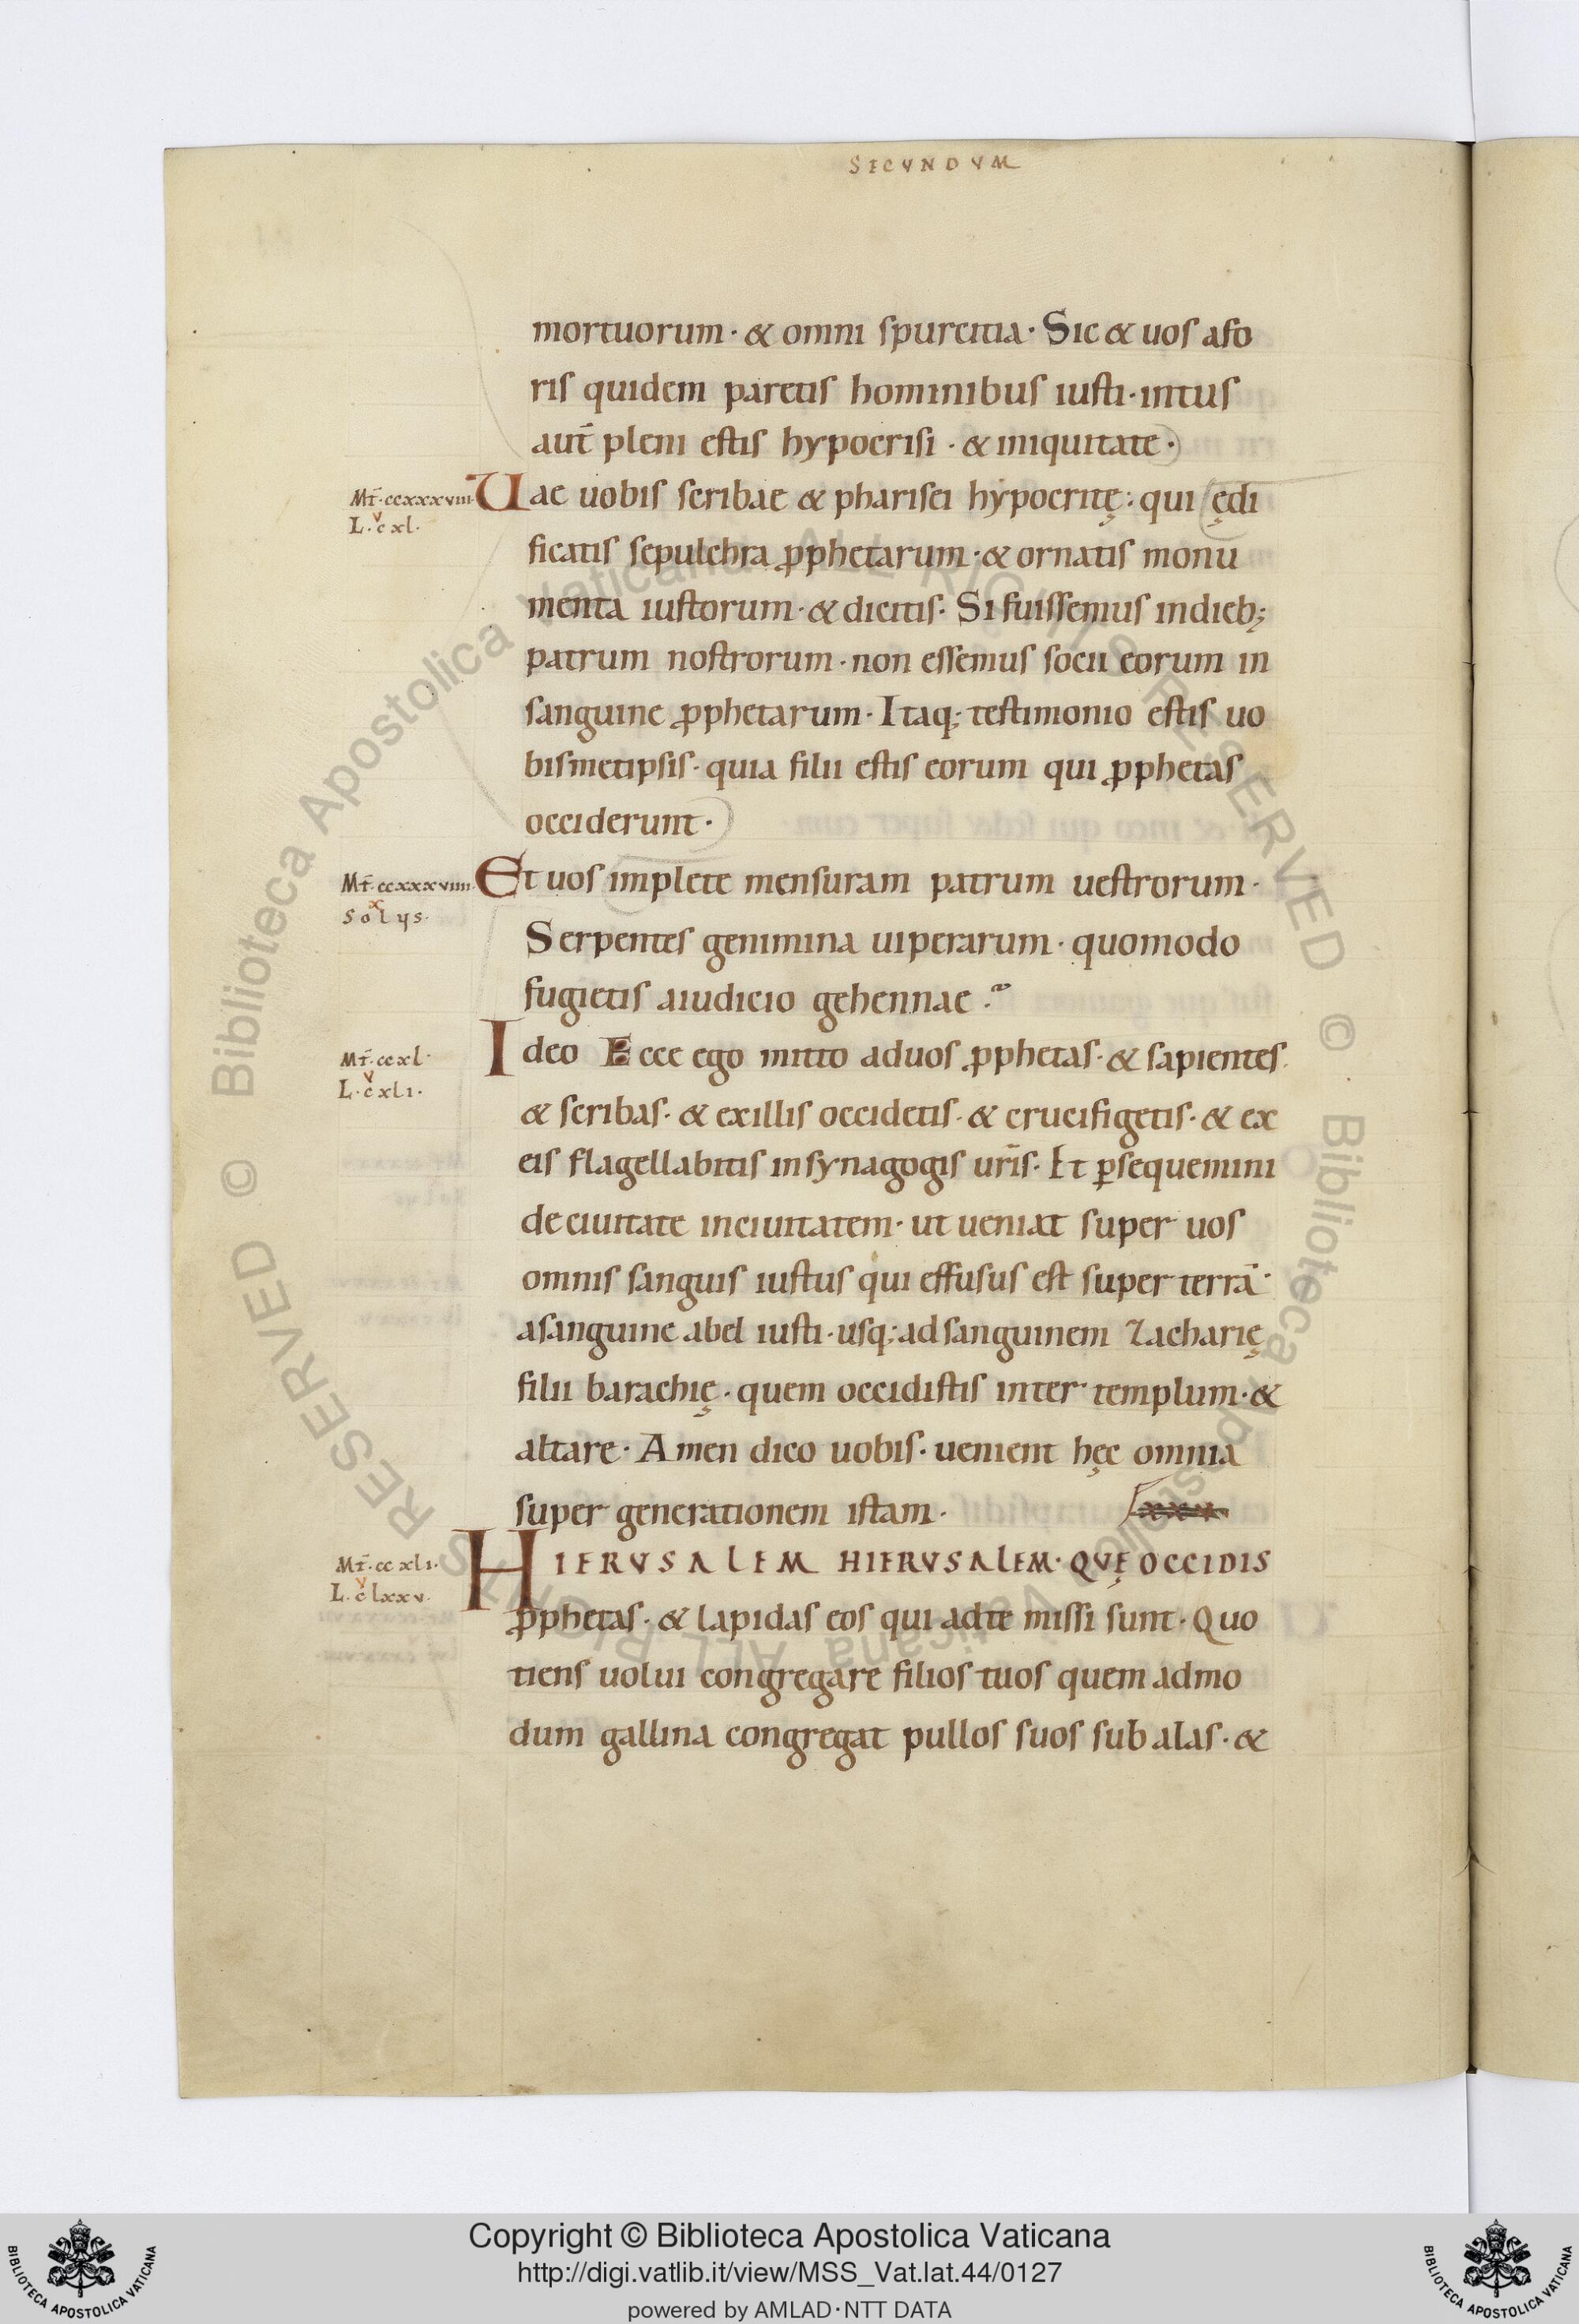 SECVNDVM
mortuorum · & omni spurcitia · Sic & uos afo
ris quidem paretis hominibus iusti · intus
aut̄ pleni estis hypocrisi · & iniquitate ·
Mt̄ · ccxxxviii · Uae uobis scribae & pharisei hypocritę : qui ędi
L · cxl · v
ficatis sepulchra ꝓphetarum · & ornatis monu
menta iustorum · & dicitis · Si fuissemus indieb;
patrum nostrorum · non essemus socii eorum in
sanguine ꝓphetarum · Itaq; testimonio estis uo
bismetipsis · quia filii estis eorum qui ꝓphetas
occiderunt ·
Mt̄ · ccxxxviiii · Et uos implete mensuram patrum uestrorum ·
x
solus ·
Serpentes genimina uiperarum · quomodo
fugietis aiudicio gehennae ?
Mt̄ · ccxl · Ideo Ecce ego mitto aduos ꝓphetas · & sapientes ·
v
L · cxli ·
& scribas · & exillis occidetis · & crucifigetis · & ex
eis flagellabitis insynagogis ur̄is · Et ꝑsequemini
deciuitate inciuitatem · ut ueniat super uos
omnis sanguis iustus qui effusus est super terrā ·
asanguine abel iusti · usq; adsanguinem Zacharię
filii barachię · quem occidistis inter templum · &
altare · Amen dico uobis · uenient hęc omnia
super generationem istam ·
Mt̄ · ccxli · HIERVSALEM HIERVSALEM · QVĘ OCCIDIS
v
L · clxxv ·
ꝓphetas · & lapidas eos qui adte missi sunt · Quo
tiens uolui congregare filios tuos quem admo
dum gallina congregat pullos suos sub alas · &
© Biblioteca Apostolica Vaticana ALL RIGHTS RESERVED
© Biblioteca Apostolica Vaticana ALL RIGHTS RESERVED
BIBLIOTECA APOSTOLICA VATICANA
Copyright © Biblioteca Apostolica Vaticana
http://digi.vatlib.it/view/MSS_Vat.lat.44/0127
powered by AMLAD · NTT DATA
BIBLIOTECA APOSTOLICA VATICANA